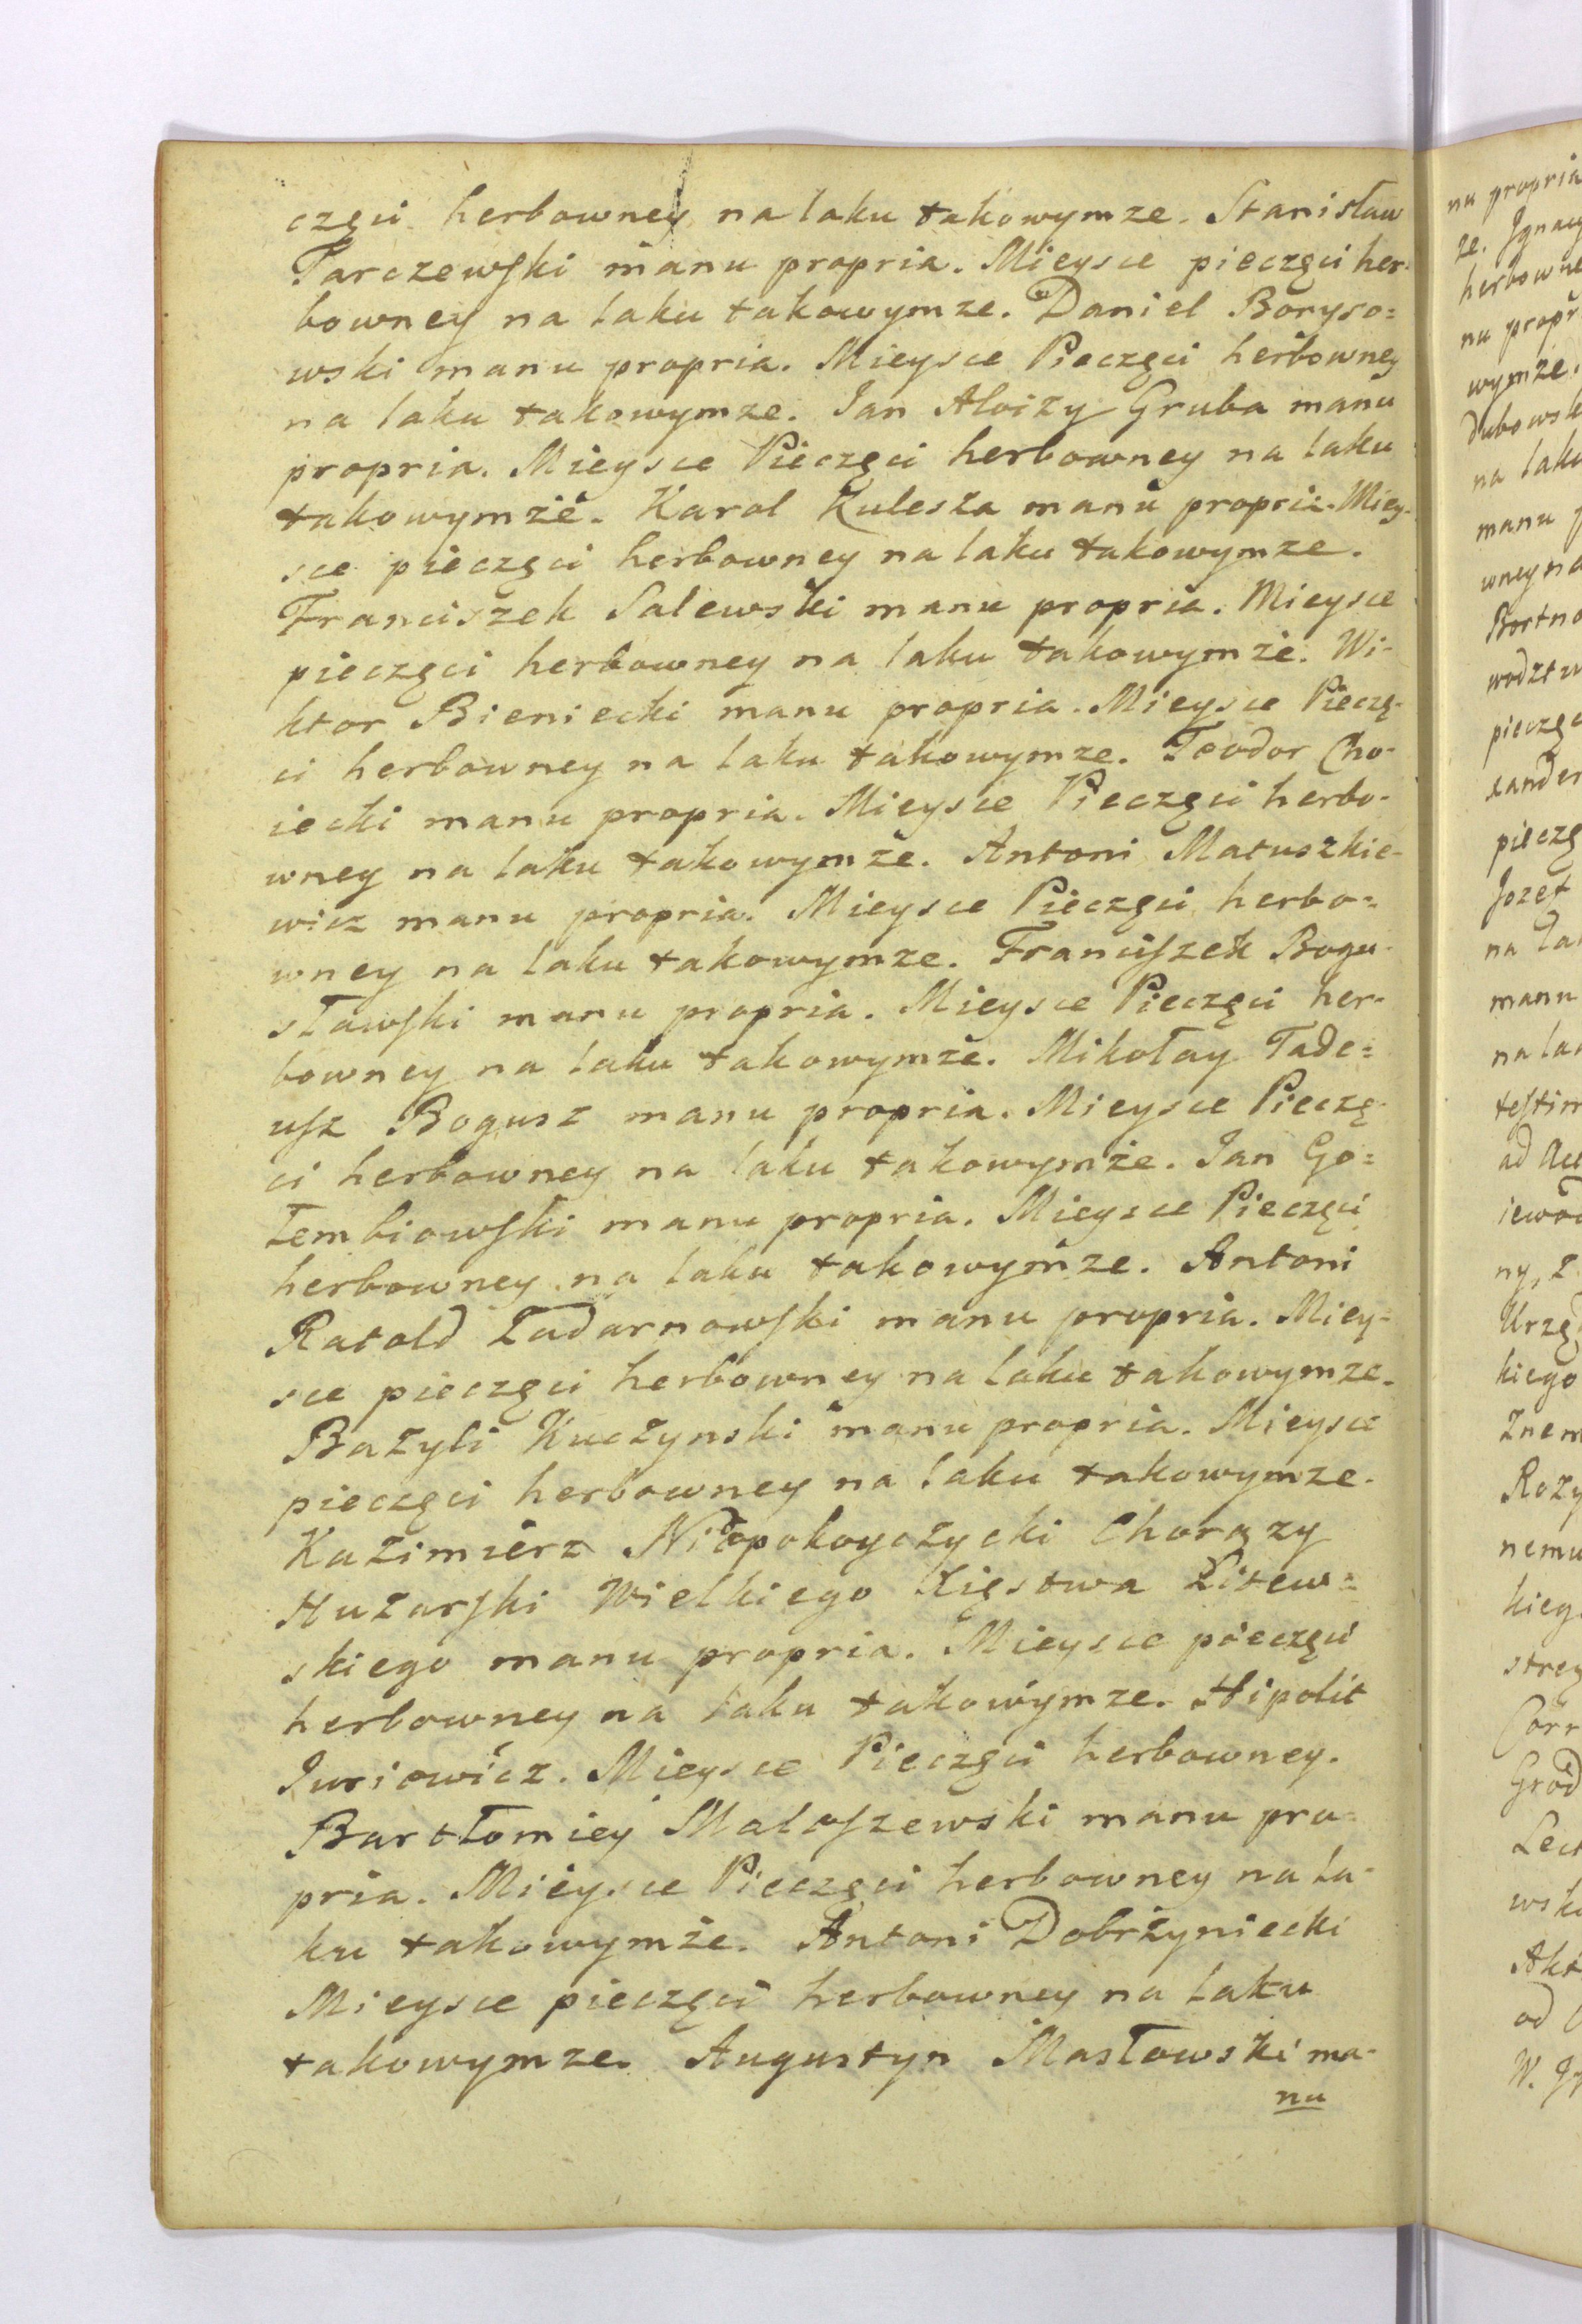 częci herbowney na laku takowymze. Stanisław
Tarczewski manu propria. Mieysce pieczęci her-
bowney na laku takowymze. Daniel Boryso=
wski manu propria. Mieysce Pieczęci herbowney
na laku takowymze. Jan Aloizy Gruba manu
propria. Mieysce Pieczęci herbowney na laku
takowymże. Karol Kulesza manu propria. Miey-
sce pieczęci herbowney na laku takowymze.
Franciszek Salewski manu propria. Mieysce
pieczęci herbowney na laku takowymże. Wi-
ktor Bieniecki manu propria. Mieysce Pieczę-
ci herbowney na laku takowymze. Teodor Cho-
iecki manu propria. Mieysce Pieczęci herbo-
wney na laku takowymże. Antoni Matuszkie-
wicz manu propria. Mieysce Pieczęci herbo=
wney na laku takowymze. Franciszek Bogu-
sławski manu propria. Mieysce Pieczęci her-
bowney na laku takowymże. Mikołay Tade=
usz Bogusz manu propria. Mieysce Pieczę-
ci herbowney na laku takowymże. Jan Go=
łembiowski manu propria. Mieysce Pieczęci
herbowney na laku takowymze. Antoni
Ratold Zadarnowski manu propria. Miey=
sce pieczęci herbowney na laku takowymze.
Bazyli Kuczynski manu propria. Mieysce
pieczęci herbowney na laku takowymze.
Kazimierz Niepokoyczycki Chorązy
Huzarski Wielkiego Xięstwa Litew=
skiego manu propria. Mieysce pieczęci
herbowney na laku takowymze. Hipolit
Juriewicz. Mieysce Pieczęci herbowney.
Bartłomiey Malaszewski manu pro-
pria. Mieysce Pieczęci herbowney na la-
ku takowymże. Antoni Dobrżyniecki
Mieysce pieczęci herbowney na laku
takowymze. Augustyn Masłowski ma-
nu